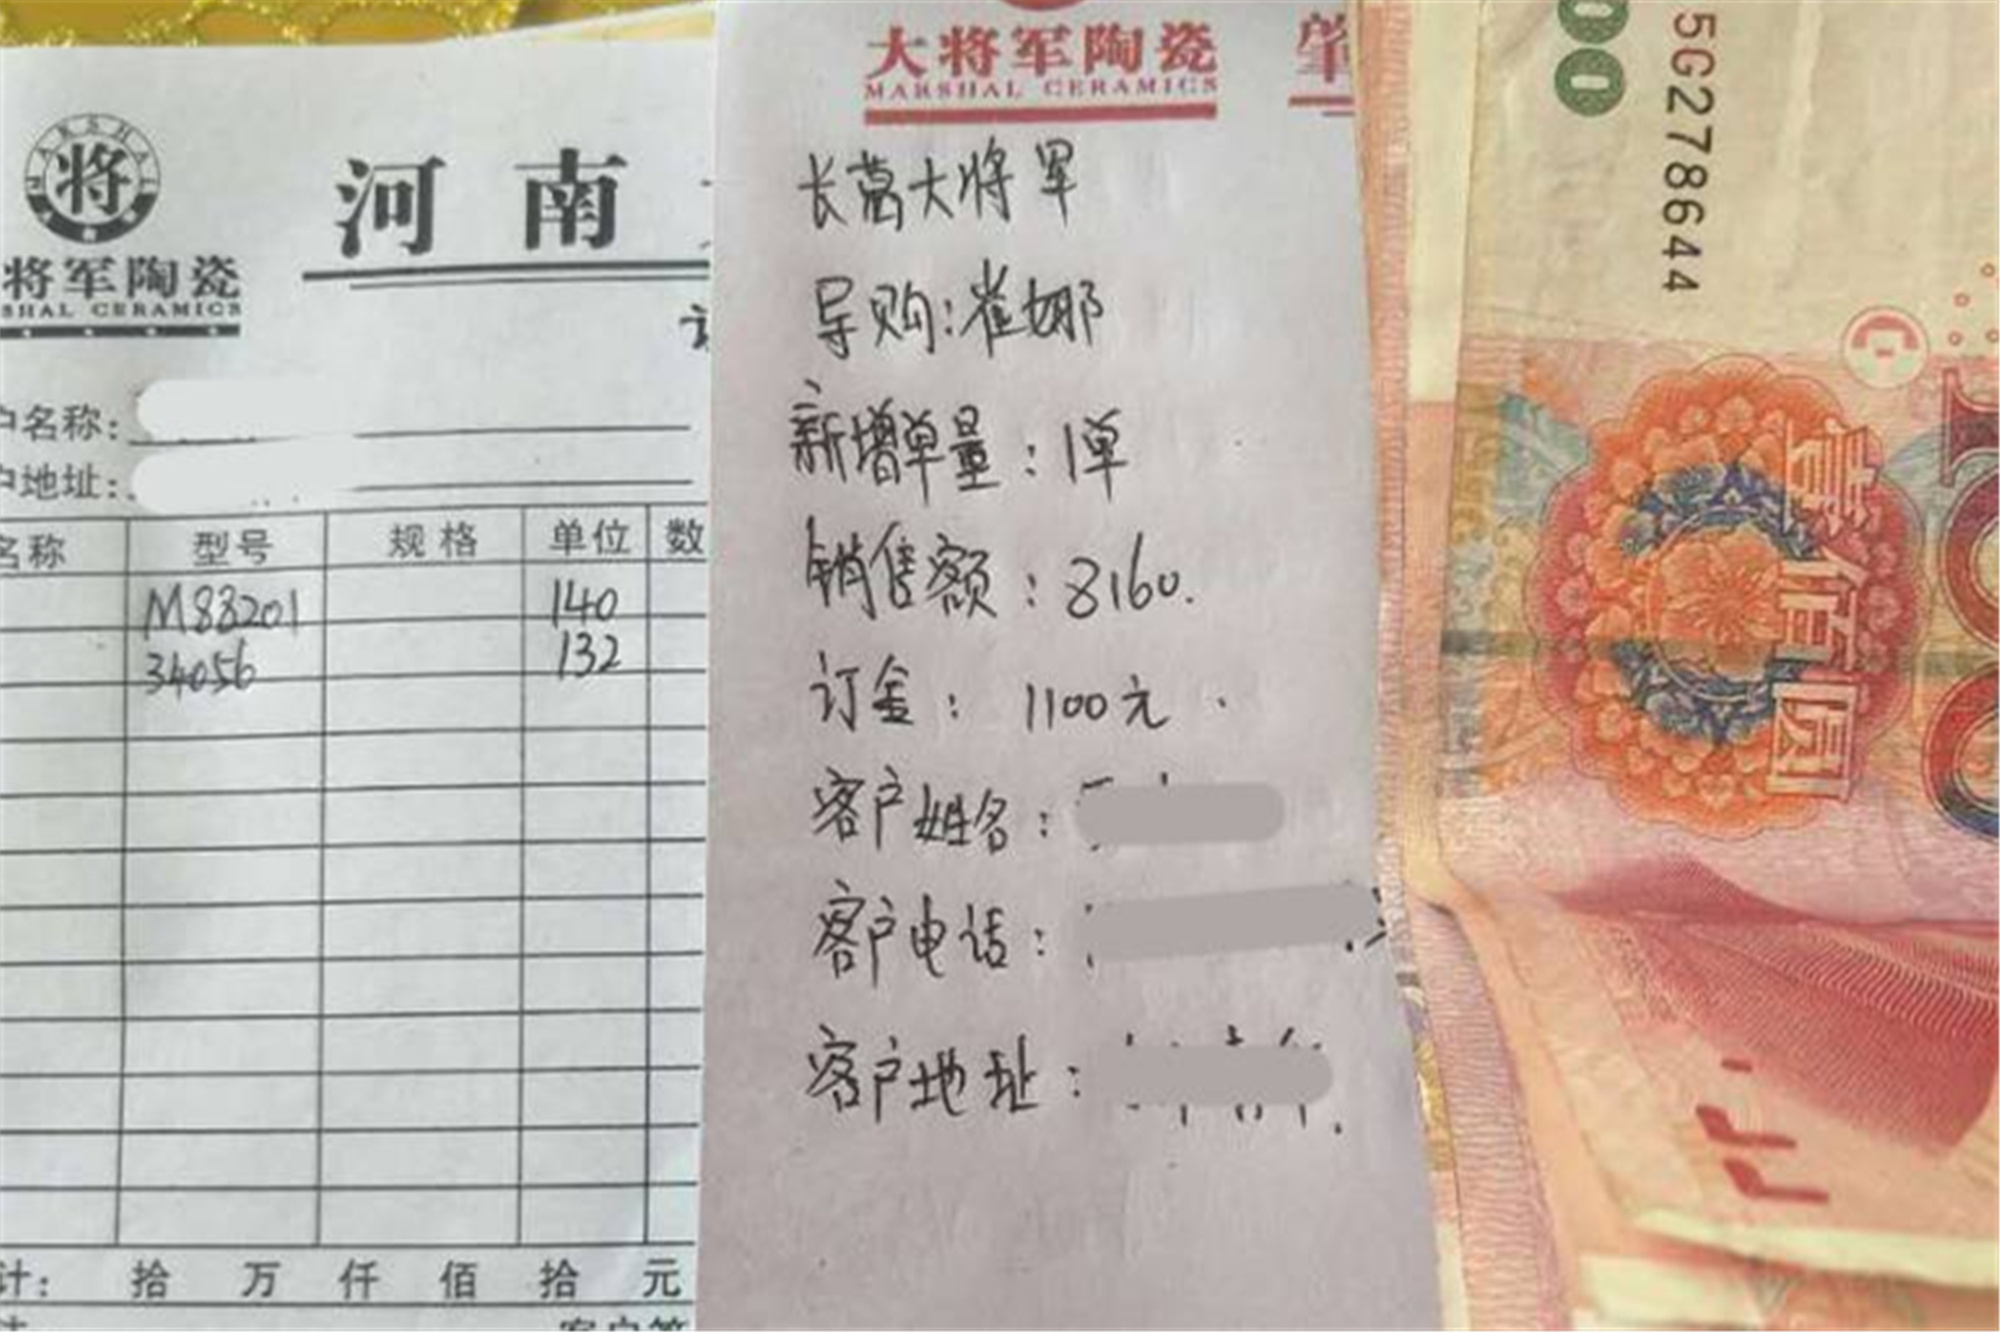 MARSHAL
将
将军陶瓷
SHAL CERAMICS
河南
户名称:
户地址:
名称 型号 规格 单位 数
M88201 140
34056 132
计: 拾 万 仟 佰 拾 元
大将军陶瓷
MARSHAL CERAMICS
肇
长葛大将军
导购:崔娜
新增单量:1单
销售额:8160.
订金:1100元.
客户姓名:
客户电话:
客户地址:
00
5G278644
壹佰圆
100